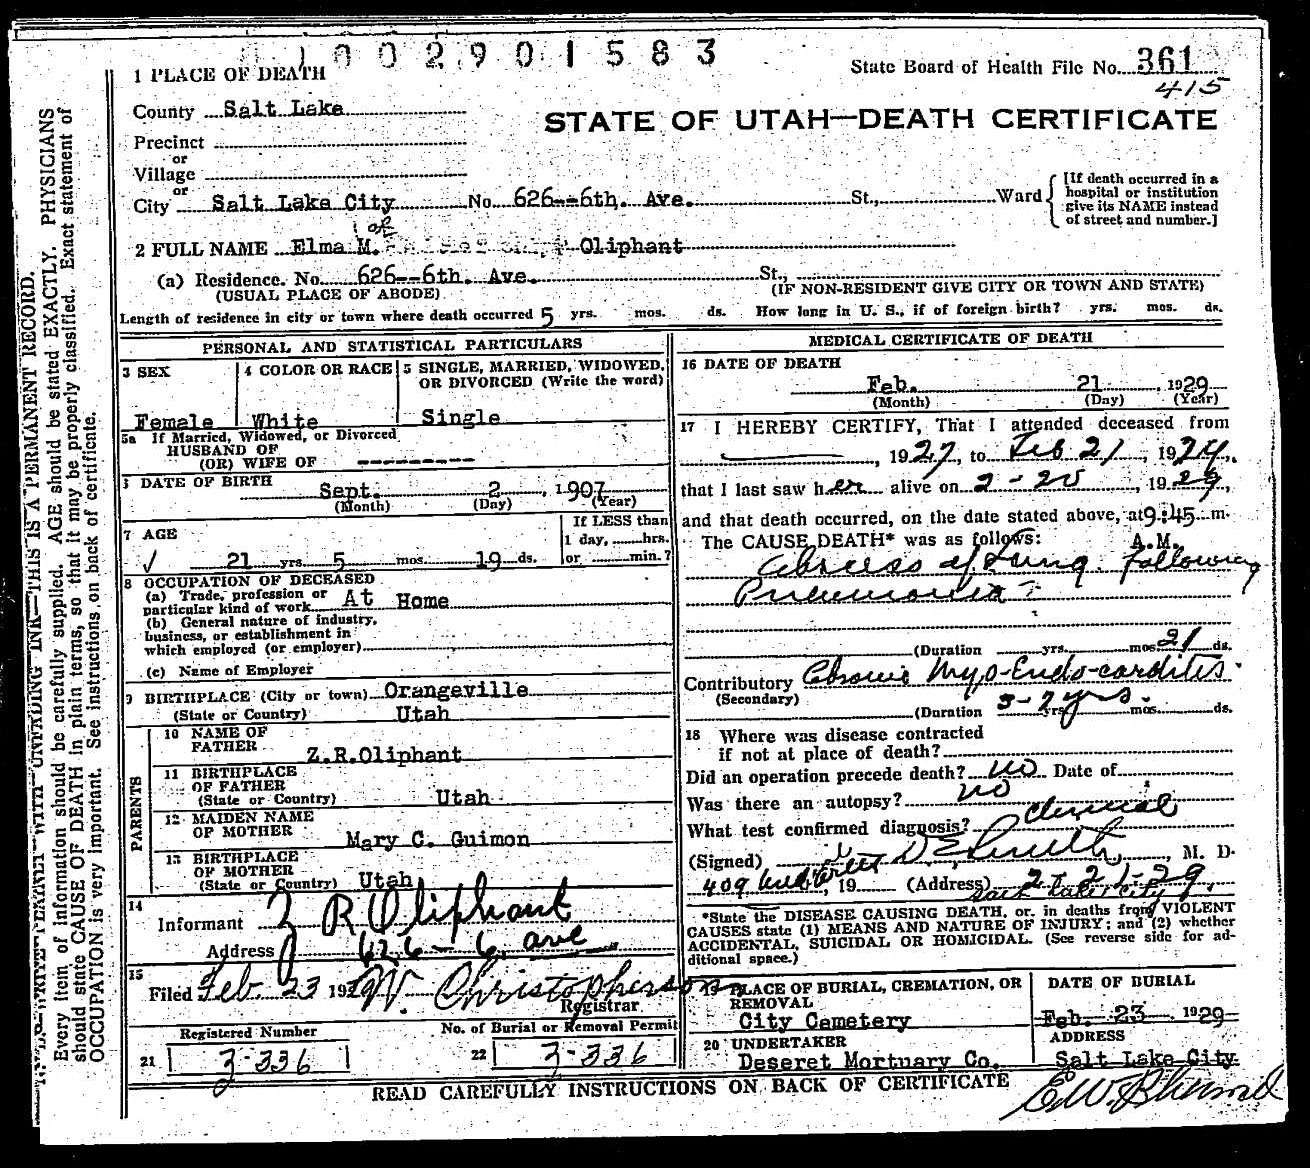 1002901583
State Board of Health File No. 361
415
1 PLACE OF DEATH
County Salt Lake
STATE OF UTAH—DEATH CERTIFICATE
Precinct
or
Village
or
City Salt Lake City No. 626--6th. Ave. St., Ward
[If death occurred in a hospital or institution give its NAME instead of street and number.]
2 FULL NAME Elma M. Oliphant
(a) Residence. No. 626--6th. Ave. St.,
(USUAL PLACE OF ABODE) (IF NON-RESIDENT GIVE CITY OR TOWN AND STATE)
Length of residence in city or town where death occurred 5 yrs. mos. ds. How long in U. S., if of foreign birth? yrs. mos. ds.
PERSONAL AND STATISTICAL PARTICULARS
3 SEX
Female
4 COLOR OR RACE
White
5 SINGLE, MARRIED, WIDOWED,
OR DIVORCED (Write the word)
Single
5a If Married, Widowed, or Divorced
HUSBAND OF
(OR) WIFE OF ---------
DATE OF BIRTH
Sept. 2, 1907
(Month) (Day) (Year)
7 AGE
√ 21 yrs. 5 mos. 19 ds.
If LESS than
1 day, hrs.
or min.?
8 OCCUPATION OF DECEASED
(a) Trade, profession or
particular kind of work At Home
(b) General nature of industry,
business, or establishment in
which employed (or employer)
(c) Name of Employer
9 BIRTHPLACE (City or town) Orangeville
(State or Country) Utah
PARENTS
10 NAME OF
FATHER Z.R.Oliphant
11 BIRTHPLACE
OF FATHER
(State or Country) Utah
12 MAIDEN NAME
OF MOTHER Mary C. Guimon
13 BIRTHPLACE
OF MOTHER
(State or Country) Utah
14
Informant Z R Oliphant
Address 626 - 6 ave
15
Filed Feb. 23 1929 W. Christopherson
Registrar
Registered Number
21 3-336
No. of Burial or Removal Permit
22 3-336
MEDICAL CERTIFICATE OF DEATH
16 DATE OF DEATH
Feb. 21, 1929
(Month) (Day) (Year)
17 I HEREBY CERTIFY, That I attended deceased from
, 1927, to Feb 21, 1929,
that I last saw her alive on 2-20, 1929,
and that death occurred, on the date stated above, at 9:45 m.
The CAUSE DEATH* was as follows: A.M.
Abscess of Lung following
Pneumonia
(Duration yrs. mos. 21 ds.
Contributory Chronic Myo-Endo-carditis.
(Secondary)
(Duration yrs. mos. ds.
18 Where was disease contracted
if not at place of death?
Did an operation precede death? no Date of
Was there an autopsy? no
What test confirmed diagnosis? Clinical
(Signed) D E Smith, M. D.
409 , 19 (Address) 2-21-29.
Salt Lake City
*State the DISEASE CAUSING DEATH, or, in deaths from VIOLENT
CAUSES state (1) MEANS AND NATURE OF INJURY; and (2) whether
ACCIDENTAL, SUICIDAL OR HOMICIDAL. (See reverse side for ad-
ditional space.)
19 PLACE OF BURIAL, CREMATION, OR
REMOVAL
City Cemetery
DATE OF BURIAL
Feb. 23, 1929
20 UNDERTAKER
Deseret Mortuary Co.
ADDRESS
Salt Lake City.
READ CAREFULLY INSTRUCTIONS ON BACK OF CERTIFICATE
N. B.—WRITE PLAINLY WITH UNFADING INK—THIS IS A PERMANENT RECORD.
Every item of information should be carefully supplied. AGE should be stated EXACTLY. PHYSICIANS
should state CAUSE OF DEATH in plain terms, so that it may be properly classified. Exact statement of
OCCUPATION is very important. See instructions on back of certificate.